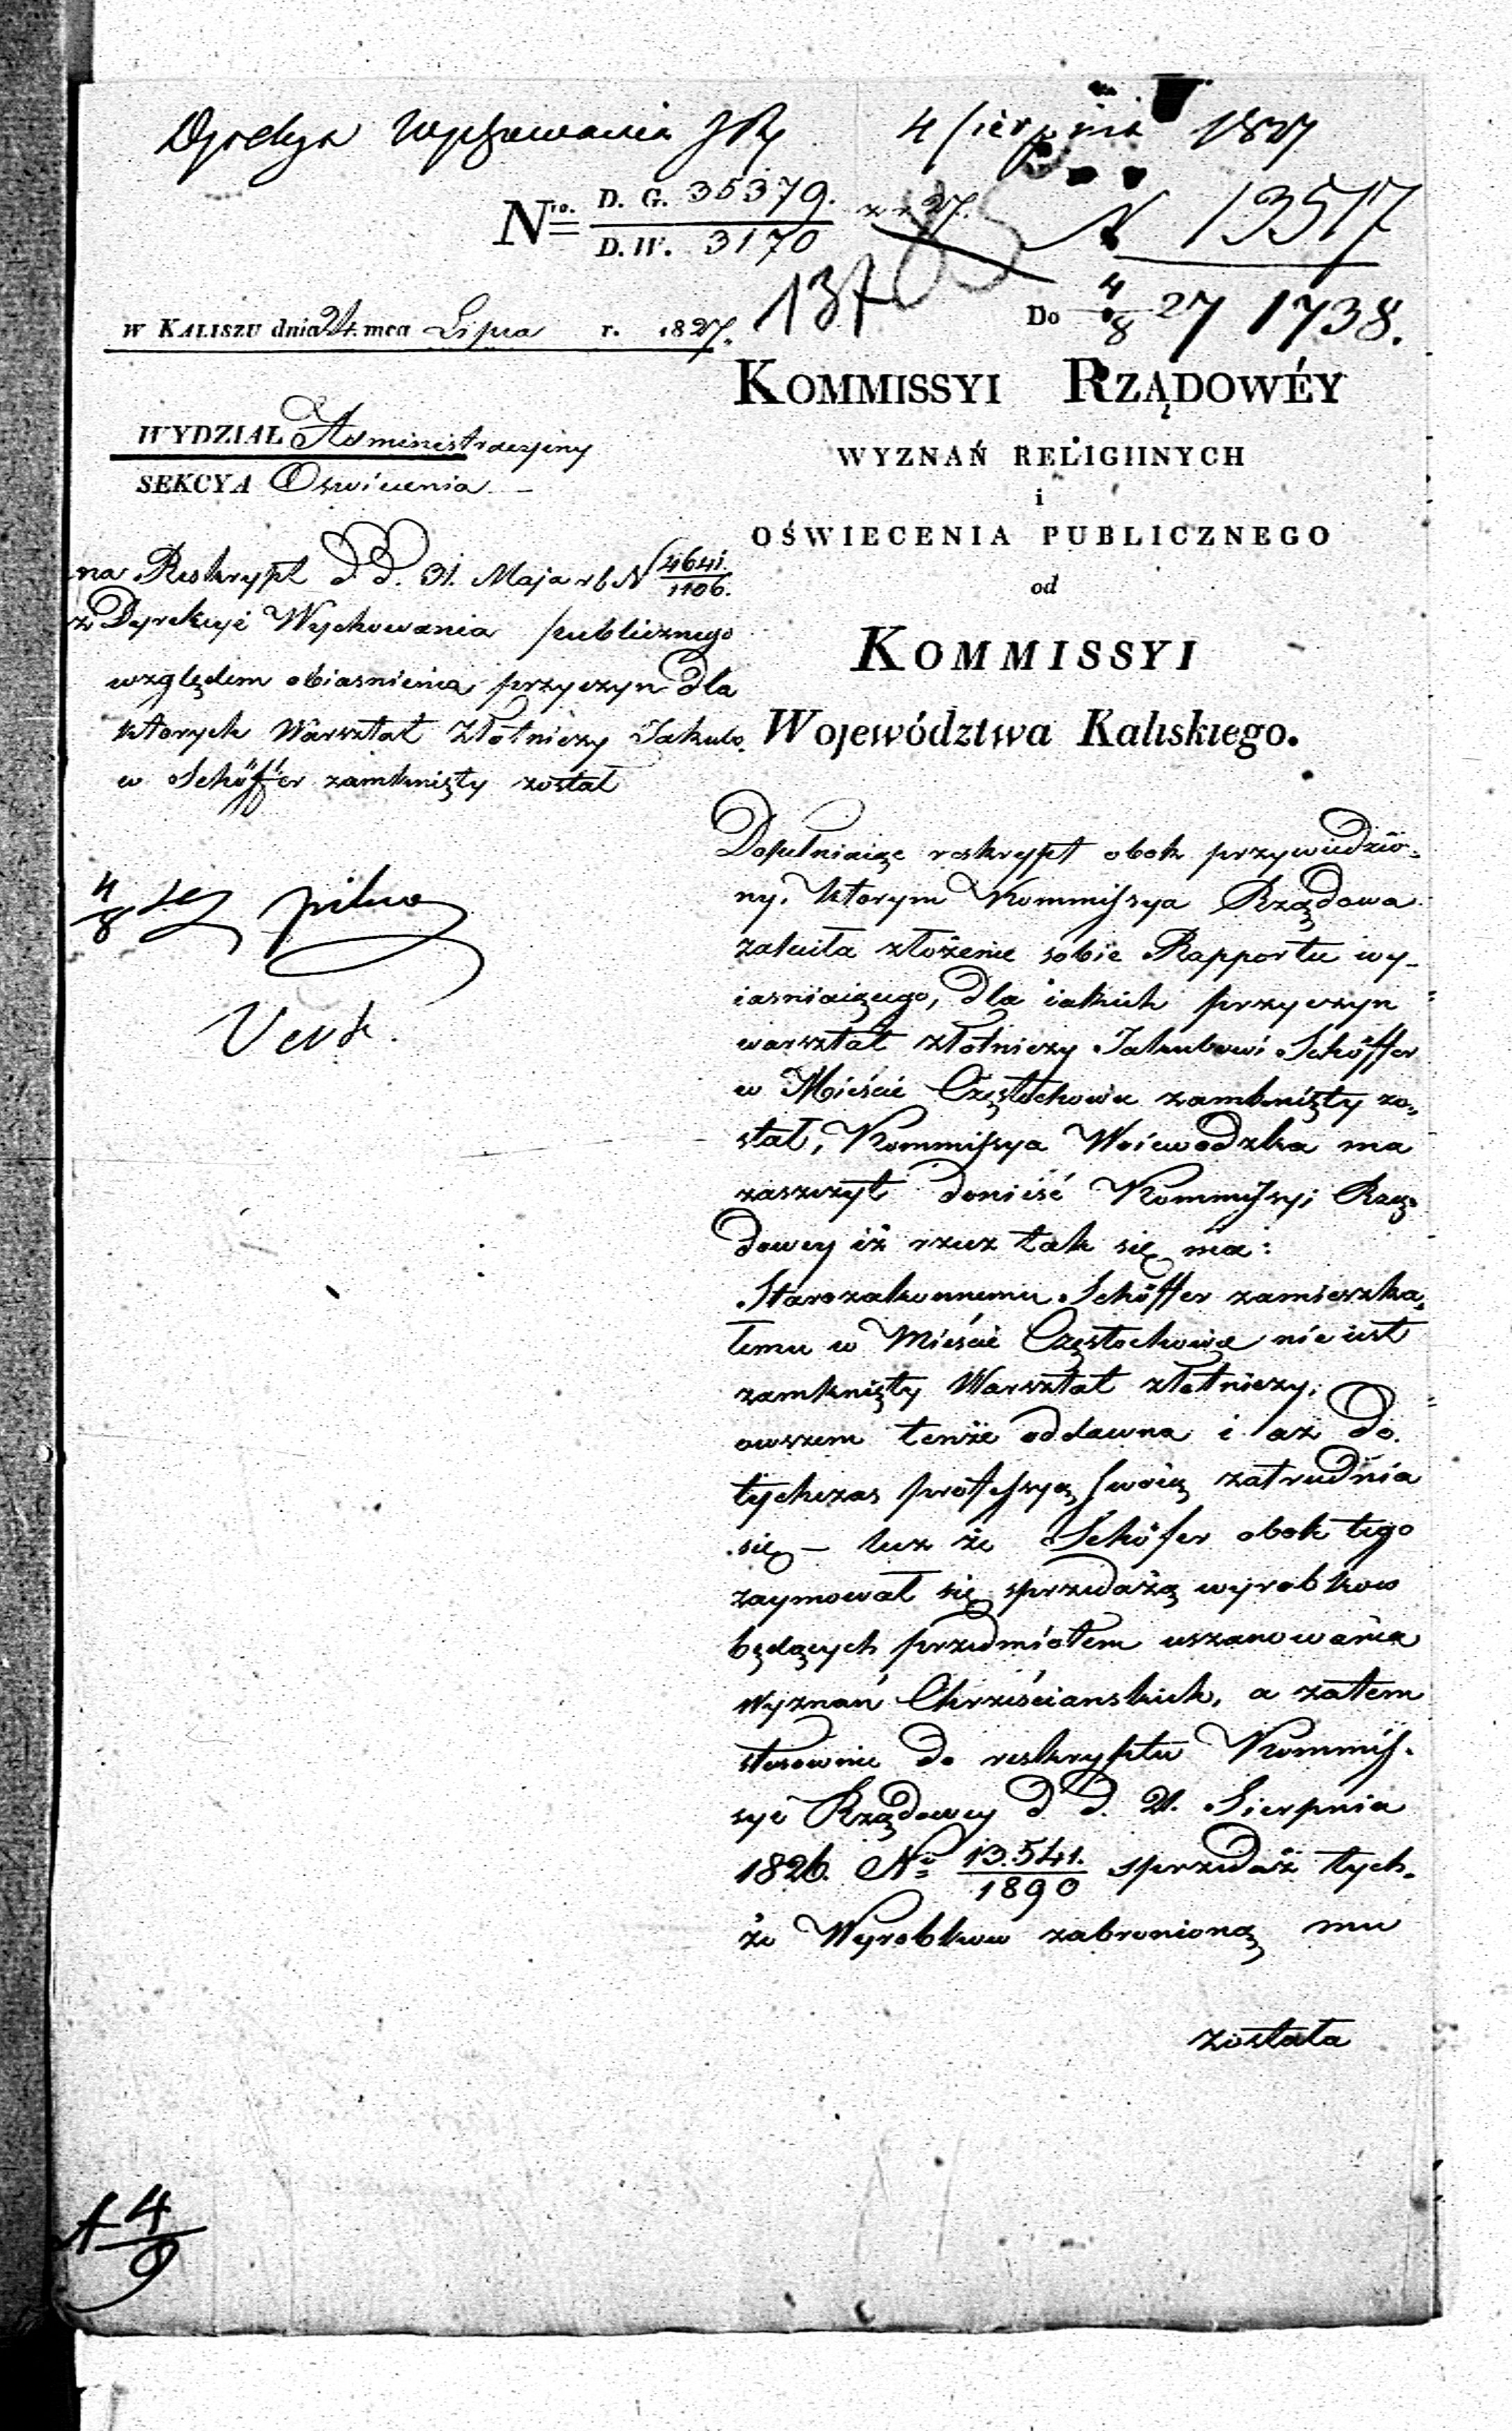 Dyrekcya Wychowania 4 Sierpnia 1827
Nro. D. G. 35379.
D. W. 3170
N 13517
137
4/8 27 1738.
w KALISZU dnia 24. mca Lipca r. 1827.
Do
KOMMISSYI RZĄDOWÉY
WYZNAŃ RELIGIINYCH
i
OŚWIECENIA PUBLICZNEGO
od
KOMMISSYI
Województwa Kaliskiego.
WYDZIAŁ Administracyiny
SEKCYA Oswiecenia
na Reskrypt d. d. 31. Maja rb N 4641./1106.
z Dyrekcyi Wychowania publicznego
względem obiasnienia przyczyn dla
ktorych Warsztat Złotniczy Jakubo
w Schöffer zamknięty został
4/8 pilno
Vert.
Dopełniaiąc reskrypt obok przywiedzio-
ny, ktorym Kommissya Rządowa
zaleciła złożenie sobie Rapportu wy-
iasniaiącego, dla iakich przyczyn
warsztat złotniczy Jakubowi Schöffer
w Mieście Częstochowie zamknięty zo-
stał, Kommissya Woiewodzka ma
zaszczyt donieść Kommissyi Rzą-
dowey iż rzecz tak się ma:
Starozakonnemu Schöffer zamieszka-
łemu w Mieście Częstochowie nie iest
zamknięty Warsztat złotniczy,
owszem tenże oddawna i aż do
tychczas professyą swoią zatrudnia
się – lecz że Schöfer obok tego
zaymował się sprzedażą wyrobkow
będących przedmiotem uszanowania
wyznań Chrześcianskich, a zatem
stosownie do reskryptu Kommis-
syi Rządowey d. d. 21. Sierpnia
1826. No 13.541./1890 sprzedaż tych-
że Wyrobkow zabronioną mu
została
A 4/9